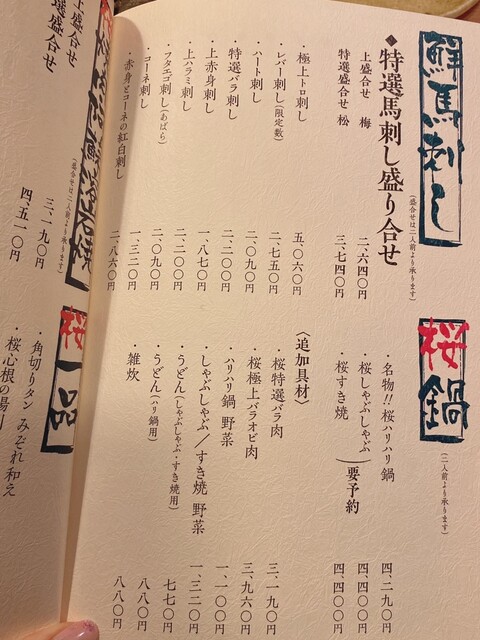 鮮馬刺し
(盛合せは二人前より承ります)
◆特選馬刺し盛り合せ
上盛合せ 梅 二、六四〇円
特選盛合せ 松 三、七四〇円
・極上トロ刺し 五、〇六〇円
・レバー刺し(限定数) 二、七五〇円
・ハート刺し 二、〇九〇円
・特選バラ刺し 二、二〇〇円
・上赤身刺し 一、八七〇円
・上ハラミ刺し 二、二〇〇円
・フタエゴ刺し(あばら) 二、〇九〇円
・コーネ刺し 一、三二〇円
・赤身とコーネの紅白刺し 二、八六〇円
桜鍋
(二人前より承ります)
・名物!!桜ハリハリ鍋 四、二九〇円
・桜しゃぶしゃぶ 四、四〇〇円
・桜すき焼 四、四〇〇円
要予約
〈追加具材〉
・桜特選バラ肉 三、一九〇円
・桜極上バラオビ肉 三、九六〇円
・ハリハリ鍋 野菜 一、一〇〇円
・しゃぶしゃぶ/すき焼 野菜 一、三二〇円
・うどん(しゃぶしゃぶ・すき焼用) 七七〇円
・うどん(ハリ鍋用) 八八〇円
・雑炊 八八〇円
溶岩焼
(盛合せは二人前より承ります)
上盛合せ 三、一九〇円
選盛合せ 四、五一〇円
桜一品
・角切りタン みぞれ和え
・桜心根の湯